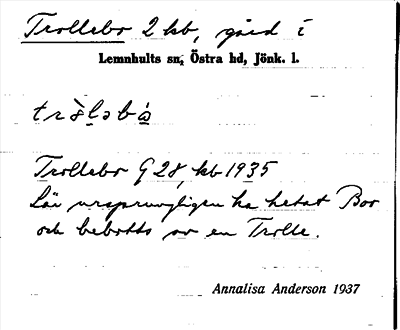 Trollebo 2 kb, gård i
Lemnhults sn, Östra hd, Jönk. l.
Trollebo G 28, kb 1935
Lär ursprungligen ha hetat Boo
och bebotts av en Trolle.
Annalisa Anderson 1937